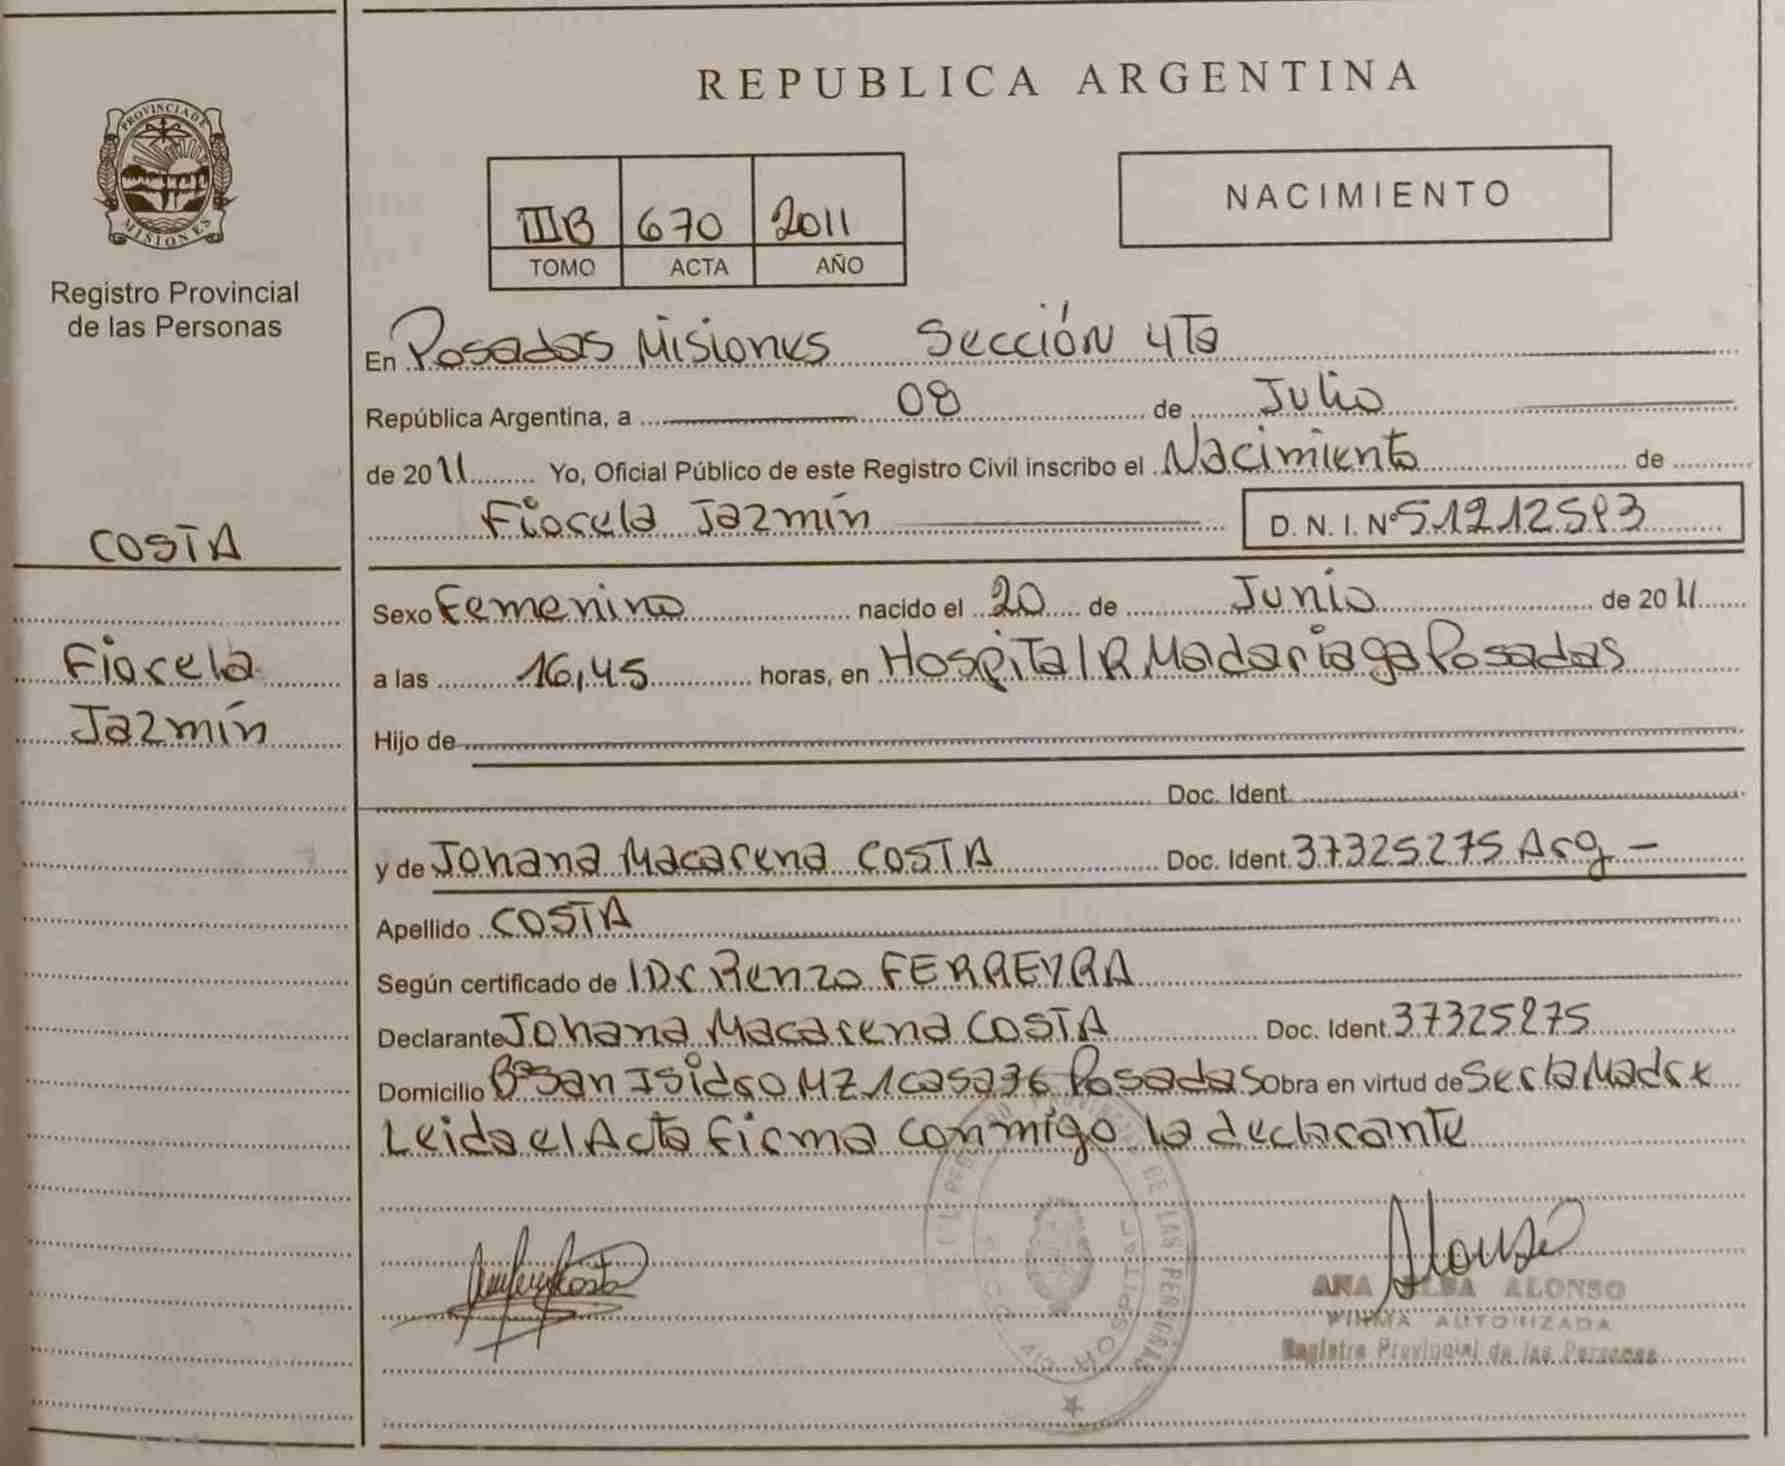 PROVINCIA DE
MISIONES
Registro Provincial
de las Personas
COSTA
Fiorela
Jazmín
REPUBLICA ARGENTINA
IIIB 670 2011
TOMO ACTA AÑO
NACIMIENTO
En Posadas Misiones Sección 4Ta
República Argentina, a 08 de Julio
de 2011 Yo, Oficial Público de este Registro Civil inscribo el Nacimiento de
Fiorela Jazmín D. N. I. Nº
Sexo Femenino nacido el 20 de Junio de 2011
a las 16,45 horas, en Hospital R Madariaga Posadas
Hijo de
Doc. Ident.
y de Johana Macarena COSTA Doc. Ident. 37325275 Arg -
Apellido COSTA
Según certificado de Renzo FERREYRA
Declarante Johana Macarena COSTA Doc. Ident. 37325275
Domicilio Bº San Isidro MZ 1 casa 36 Posadas Obra en virtud de Ser la Madre
Leida el Acta firma conmigo la declarante
DE LAS PERSONAS
HOSPITAL
Alonso
ANA ALONSO
FIRMA AUTORIZADA
Registro Provincial de las Personas